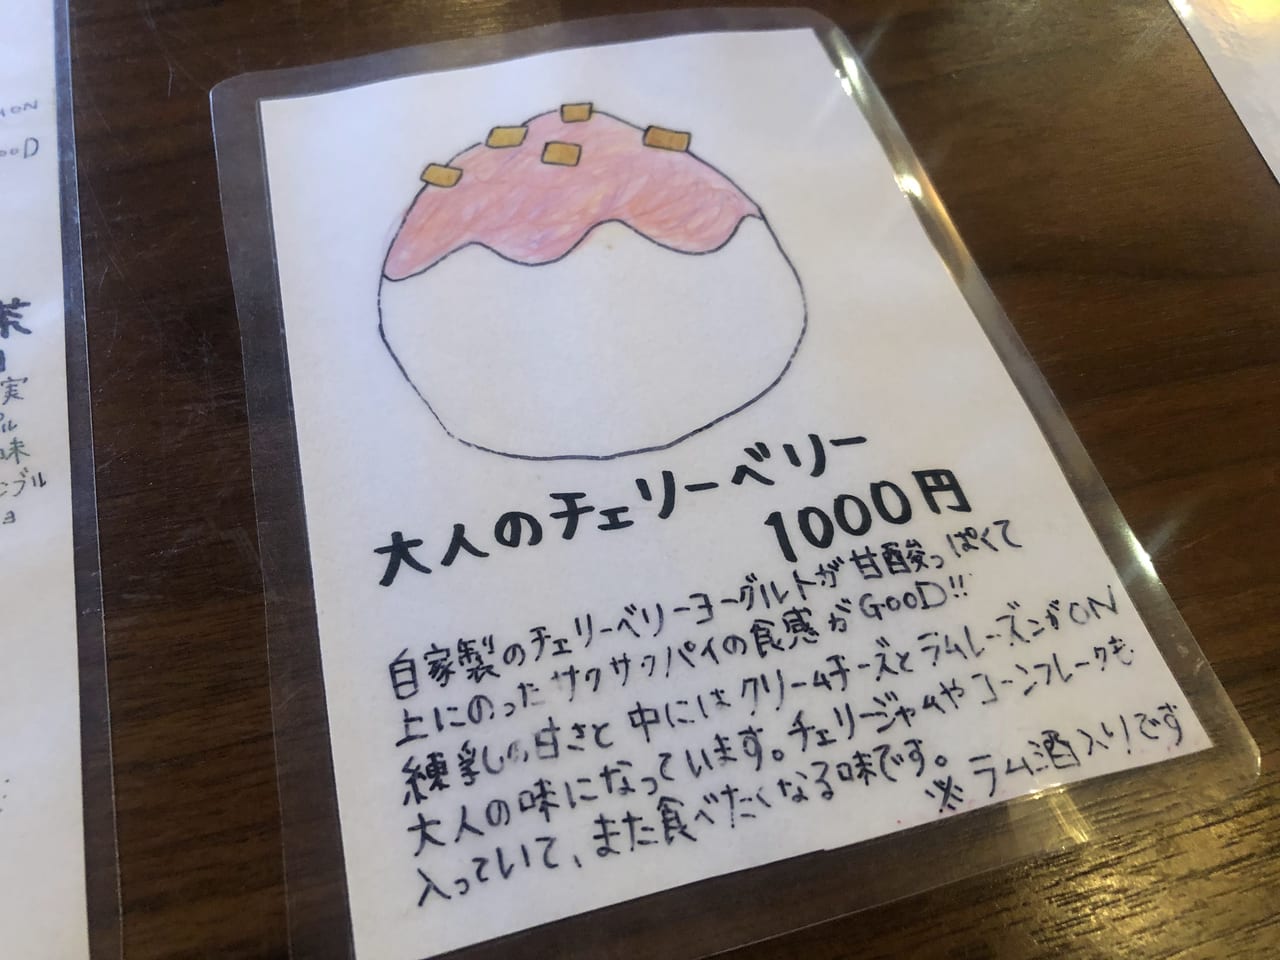 ON
OOD
茶
実
味
ブル
ョ
大人のチェリーベリー
1000円
自家製のチェリーベリーヨーグルトが甘酸っぱくて
上にのったサクサクパイの食感がGOOD!!
練乳の甘さと中にはクリームチーズとラムレーズンがON
大人の味になっています。チェリージャムやコーンフレークも
入っていて、また食べたくなる味です。
※ラム酒入りです